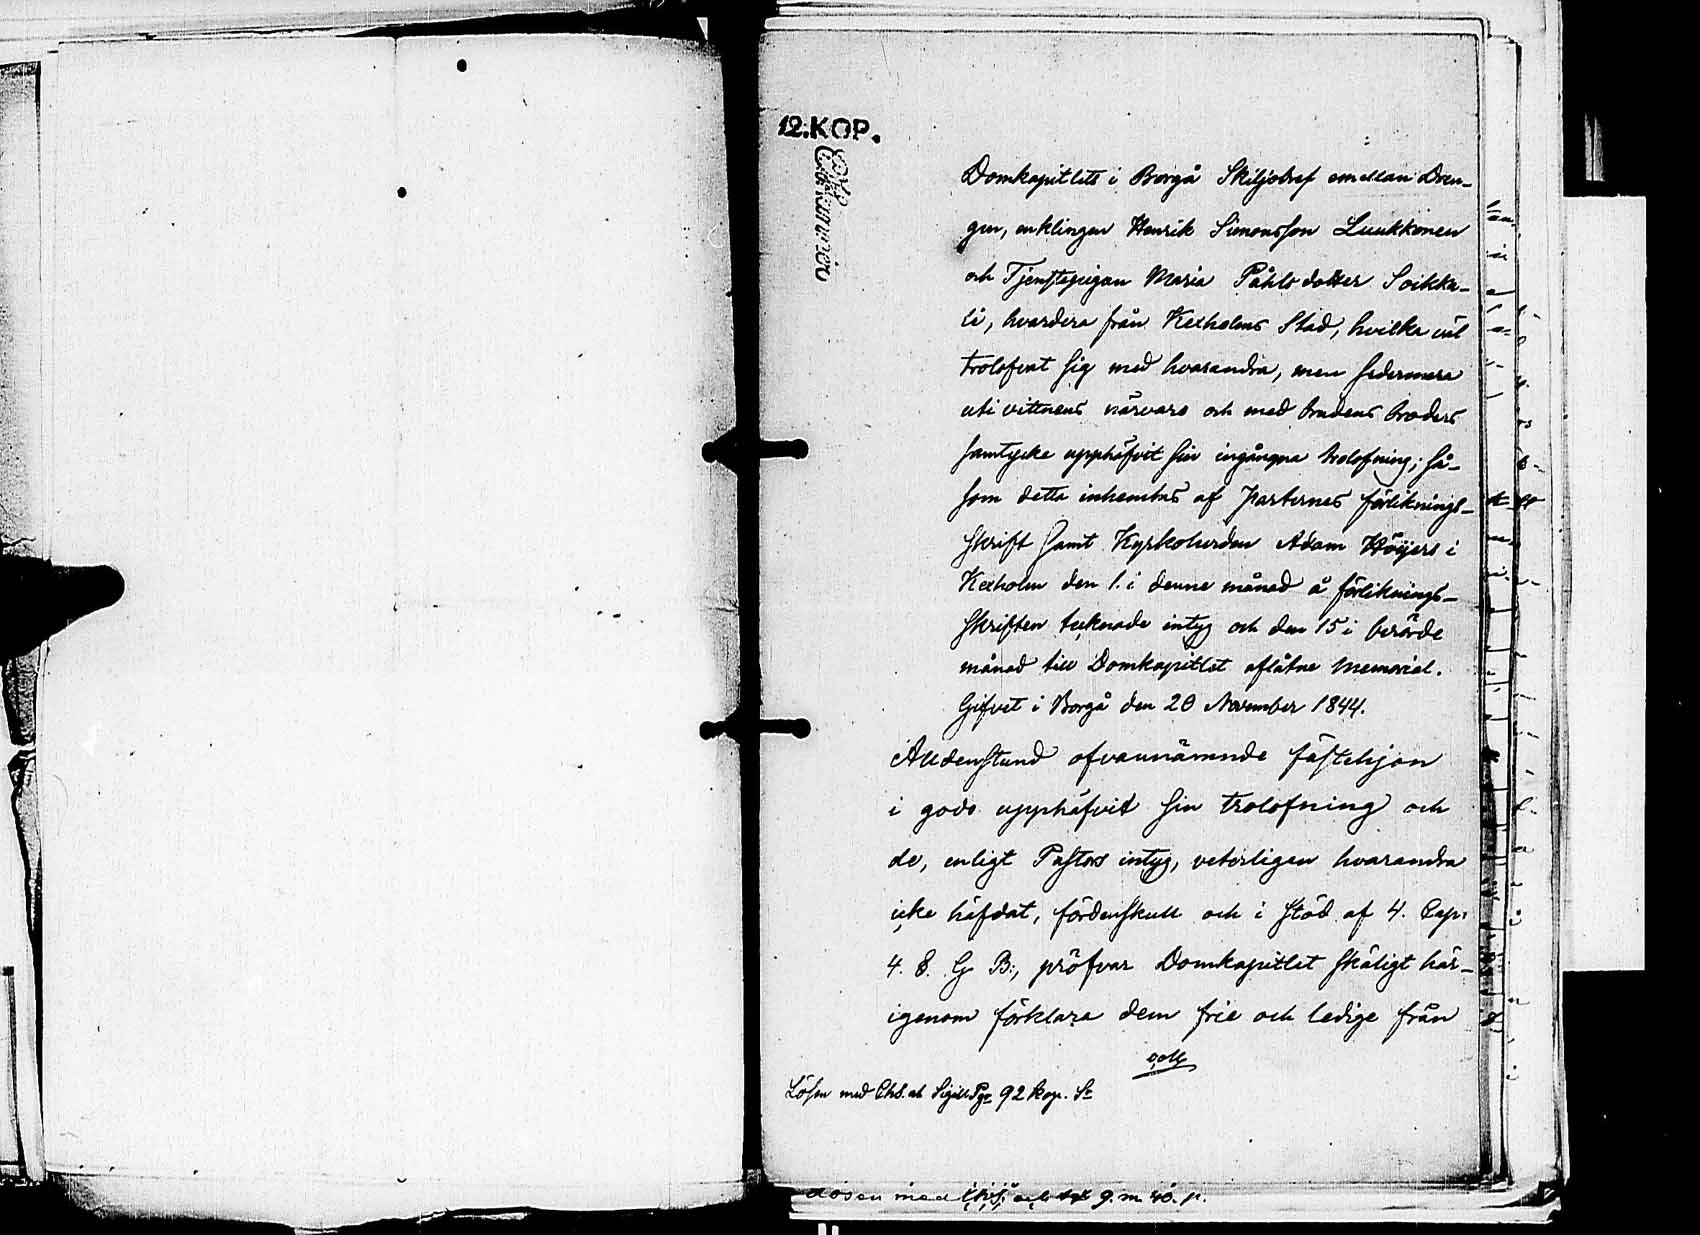 12.KOP.
Domkapitlets i Borgå Skiljobref emellan Dren-
gen, enklingen Henrik Simonsson Luukkonen
och Tjenstepigan Maria Påhlsdotter Soikke-
li, hvardera från Kexholms Stad, hvilka väl
trolofvat sig med hvarandra, men sedermera
uti vittnens närvaro och med brudens broders
samtycke upphäfvit sin ingångna trolofning; så-
som detta inhemtas af Parternes förliknings-
skrift samt Kyrkoherden Adam Höijers i
Kexholm den 1. i denne månad å förliknings-
skriften tecknade intyg och den 15 i berörde
månad till Domkapitlet aflåtne Memorial.
Gifvet i Borgå den 20 November 1844.
Alldenstund ofvannämnde fästehjon
i godo upphäfvit sin trolofning och
de, enligt Pastors intyg, veterligen hvarandra
icke häfdat, fördenskull och i stöd af 4. Cap:
4. §. G. B:, pröfvar Domkapitlet skäligt här-
igenom förklara dem frie och ledige från
all
Lösen med Chs. och Sigill Pgr 92 kop. Sr
Lösen med Chs. och 9. m. 40. p.